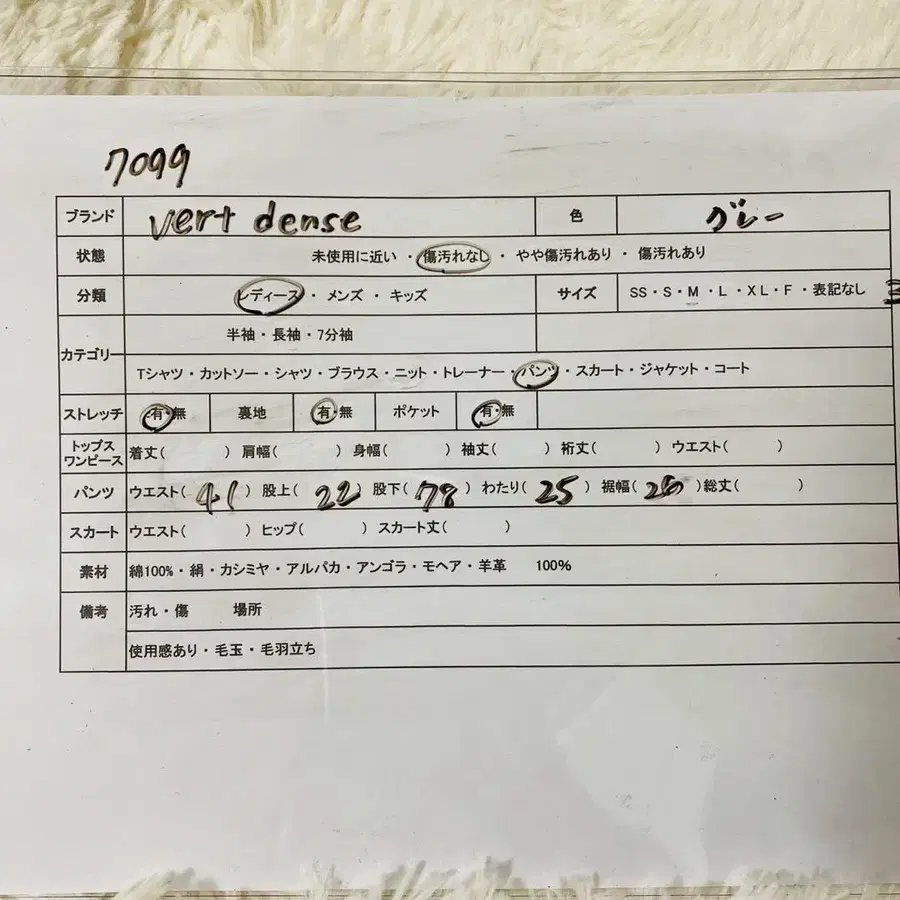 7099
ブランド vert dense 色 グレー
状態 未使用に近い ・ 傷汚れなし ・ やや傷汚れあり ・ 傷汚れあり
分類 レディース ・ メンズ ・ キッズ サイズ SS・S・M・L・XL・F・表記なし
半袖・長袖・7分袖
カテゴリー
Tシャツ・カットソー・シャツ・ブラウス・ニット・トレーナー・パンツ・スカート・ジャケット・コート
ストレッチ 有・無 裏地 有・無 ポケット 有・無
トップス
ワンピース 着丈( ) 肩幅( ) 身幅( ) 袖丈( ) 裄丈( ) ウエスト( )
パンツ ウエスト( 41 ) 股上( 22 ) 股下( 78 ) わたり( 25 ) 裾幅( ) 総丈( )
スカート ウエスト( ) ヒップ( ) スカート丈( )
素材 綿100%・絹・カシミヤ・アルパカ・アンゴラ・モヘア・羊革 100%
備考 汚れ・傷 場所
使用感あり・毛玉・毛羽立ち